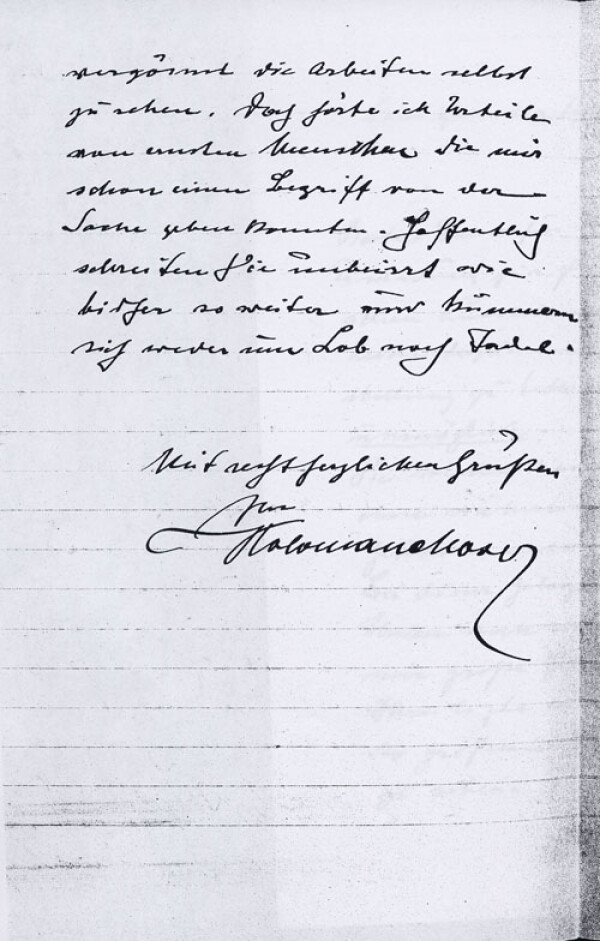 vergönnt die Arbeiten selbst
zu sehen. Doch hörte ich Urteile
von ernsten Menschen die mir
schon einen Begriff von der
Sache geben konnten. Hoffentlich
schreiten Sie unbeirrt wie
bisher so weiter und kümmern
sich weder um Lob noch Tadel.
Mit recht herzlichen Grüßen
Ihr
Koloman Moser